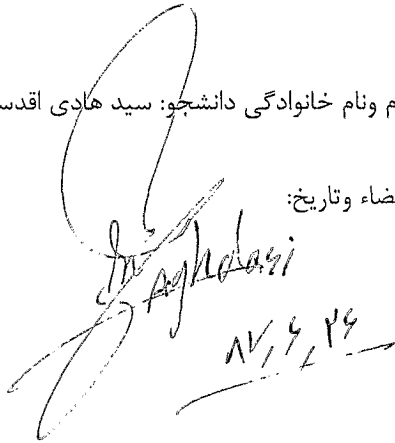 م ونام خانوادگی دانشجو: سید هادی اقدس
ضاء وتاریخ:
Aghdasi
۸۷,۶,۲۶